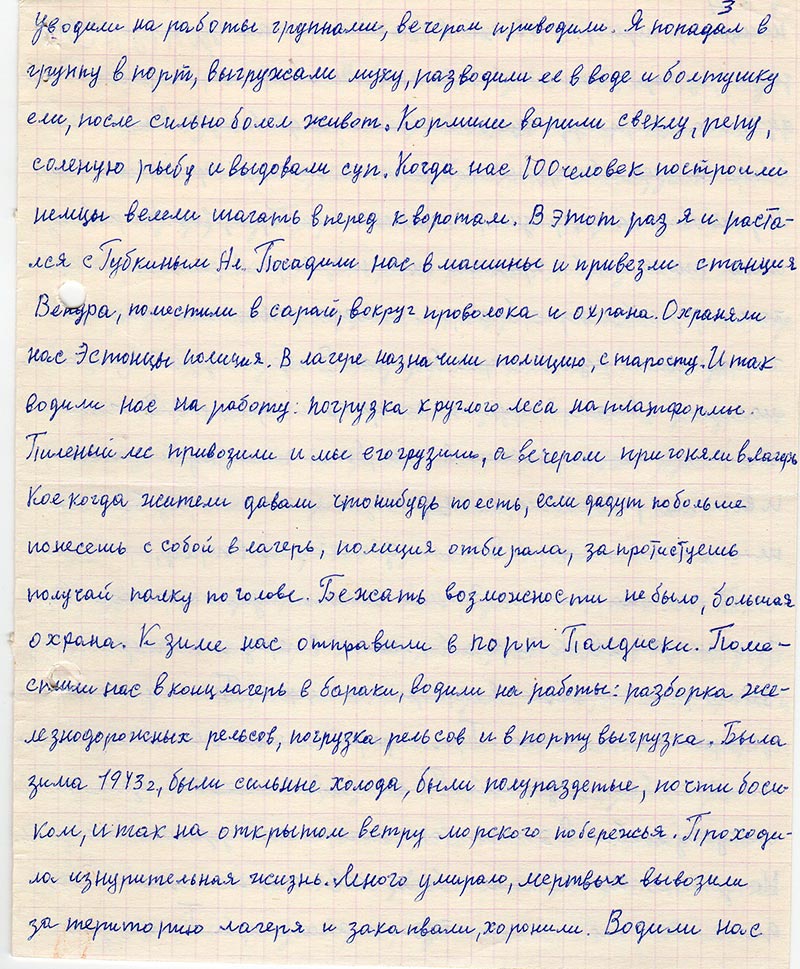 3
уводили на работы группами, вечером приводили. Я попадал в
группу в порт, выгружали муку, разводили ее в воде и болтушку
ели, после сильно болел живот. Кормили варили свеклу, репу,
соленую рыбу и выдовали суп. Когда нас 100 человек построили
немцы велели шагать вперед к воротам. В этот раз я и раста-
лся с Губкиным Ал. Посадили нас в машины и привезли станция
Вендра, поместили в сарай, вокруг проволока и охрана. Охраняли
нас Эстонцы полиция. В лагере назначили полицию, старосту. И так
водили нас на работу: погрузка круглого леса на платформы.
Пиленый лес привозили и мы его грузили, а вечером пригоняли в лагерь
Кое когда жители давали чтонибудь поесть, если дадут побольше
понесешь с собой в лагерь, полиция отбирала, запротистуешь
получай палку по голове. Бежать возможности не было, большая
охрана. К зиме нас отправили в порт Палдиски. Поме-
стили нас в концлагерь в бараки, водили на работы: разборка же-
лезнодорожных рельсов, погрузка рельсов и в порту выгрузка. Была
зима 1943г, были сильные холода, были полураздетые, почти боси-
ком, и так на открытом ветру морского побережья. Проходи-
ла изнурительная жизнь. Много умирало, мертвых вывозили
за територию лагеря и закапвали, хоронили. Водили нас